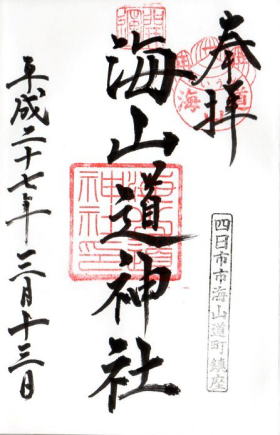 奉拝
四日市市海山道町鎮座
海山道神社
海山道神社印
平成二十七年三月十三日